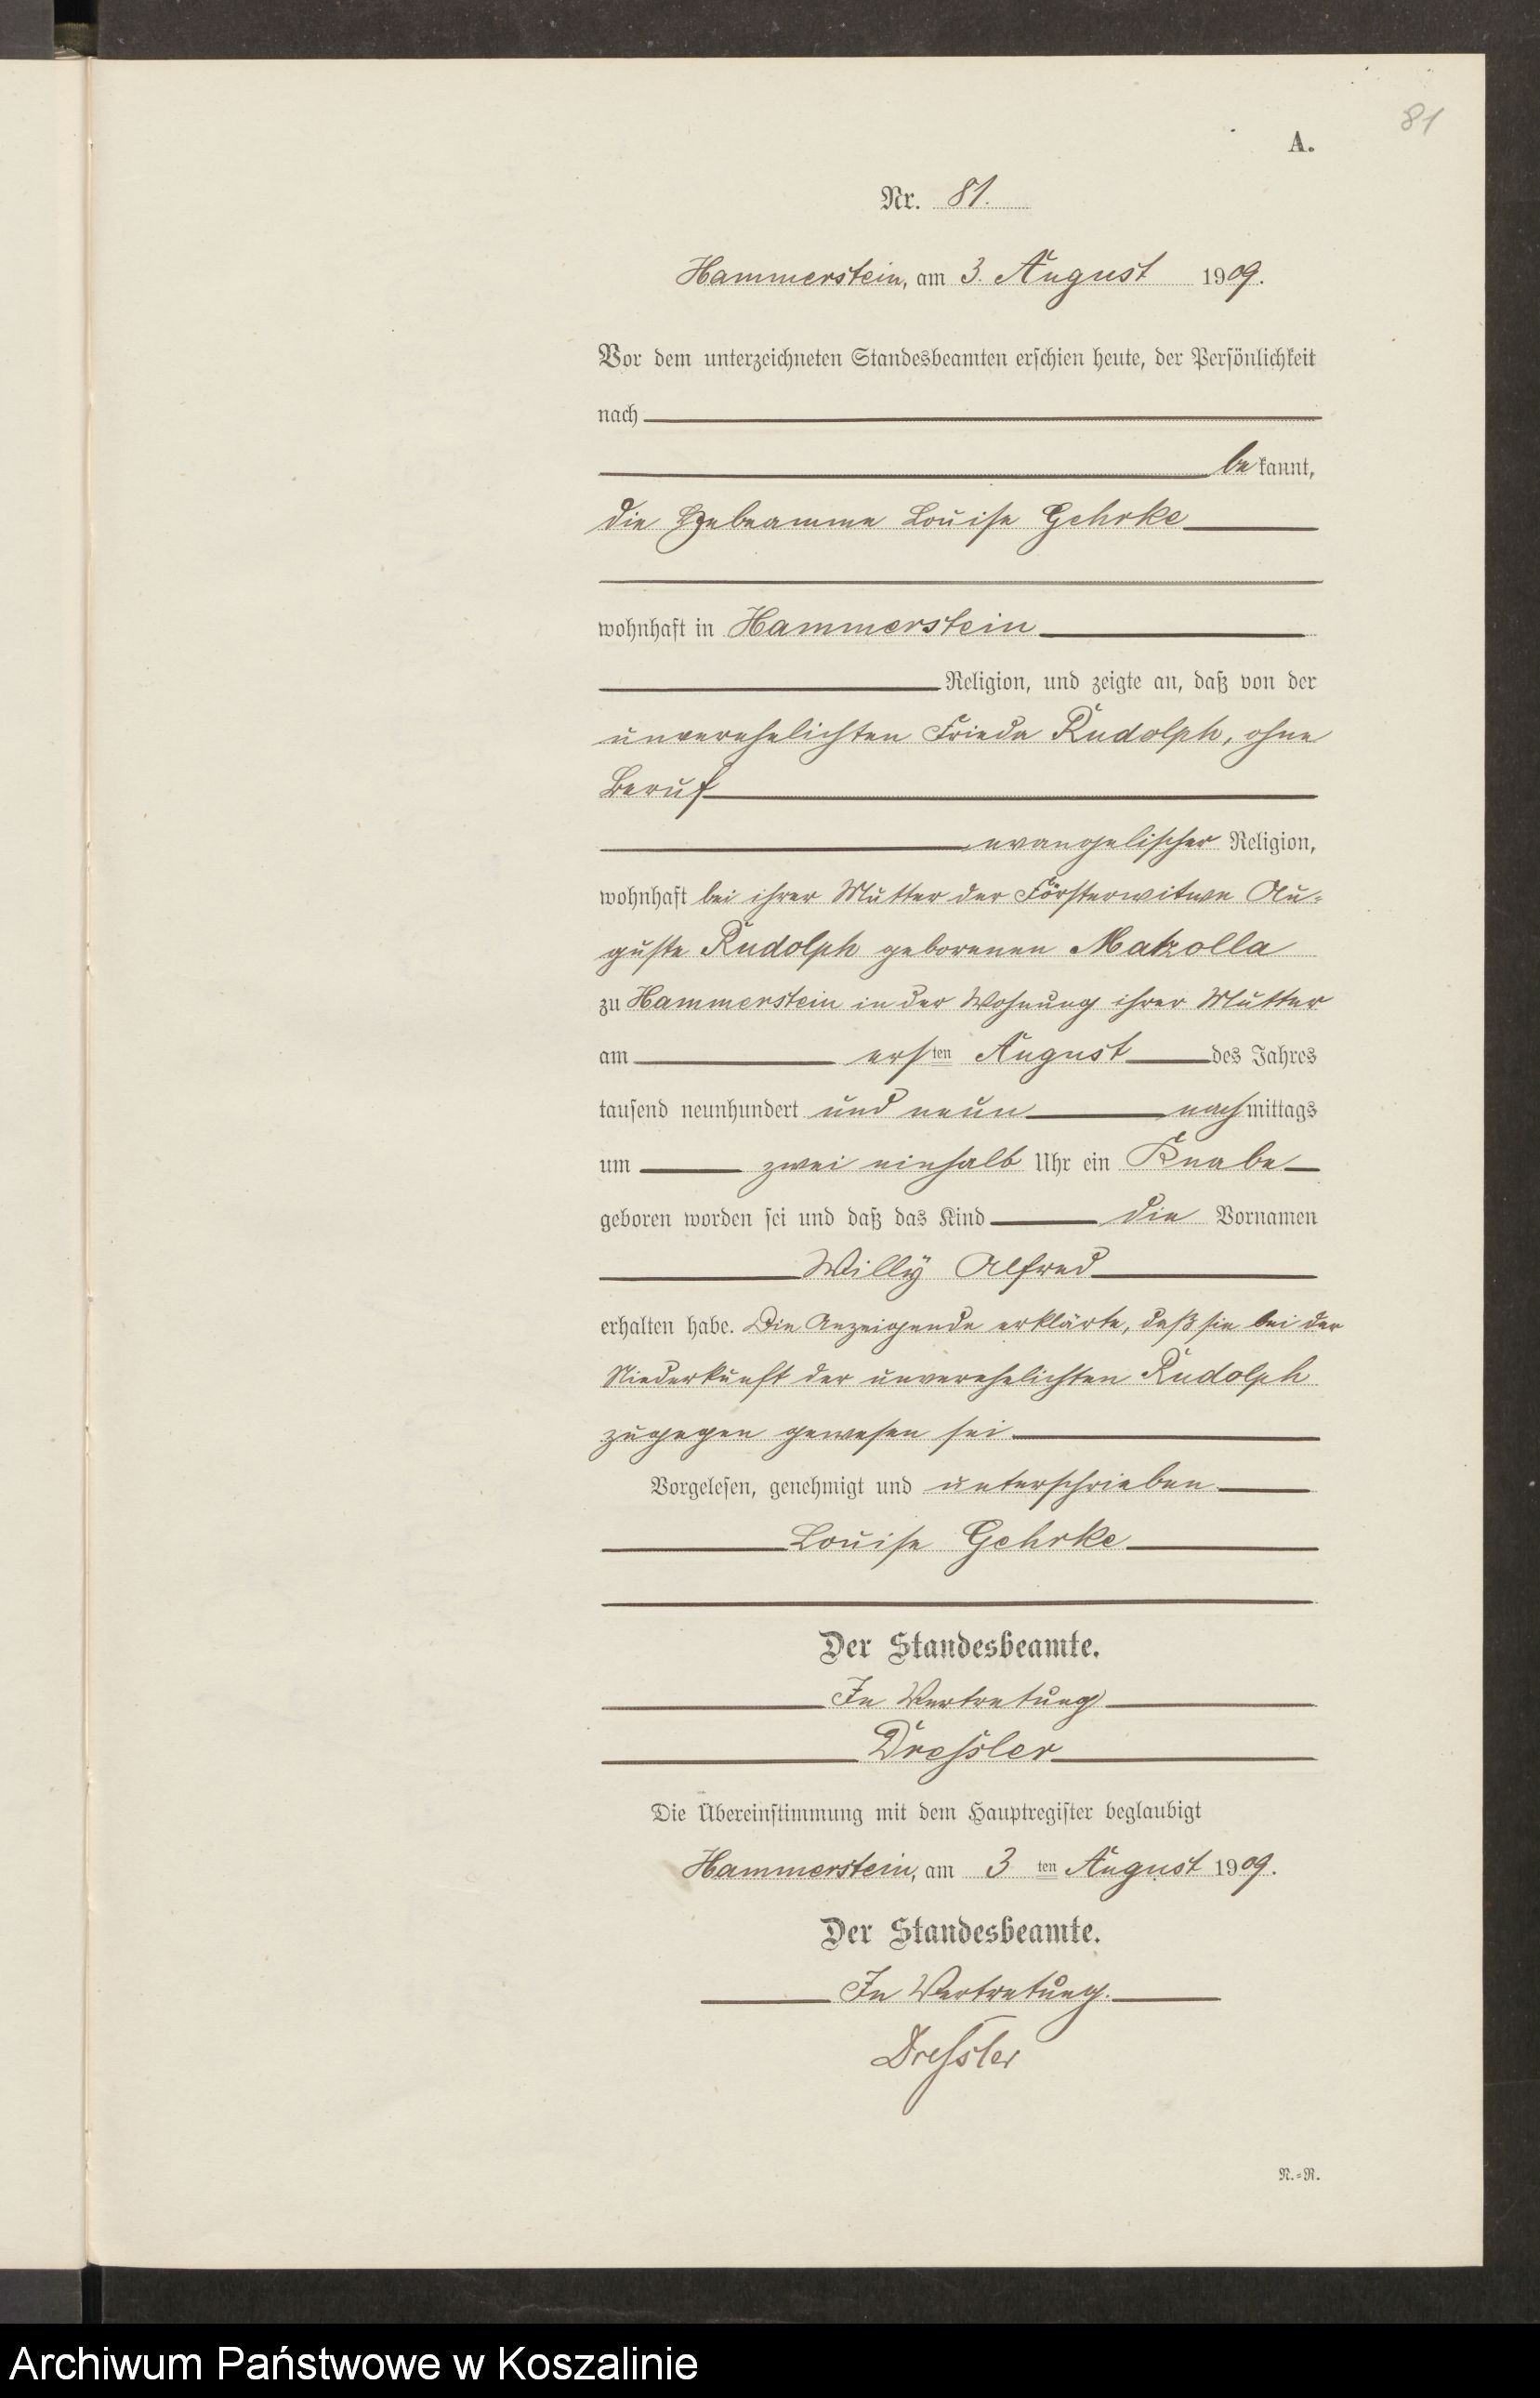 81
A.
Nr. 81.
Hammerstein, am 3. August 1909.
Vor dem unterzeichneten Standesbeamten erschien heute, der Persönlichkeit
nach
bekannt,
die Hebeamme Louise Gehrke
wohnhaft in Hammerstein
Religion, und zeigte an, daß von der
unverehelichten Frieda Rudolph, ohne
Beruf
evangelischer Religion,
wohnhaft bei ihrer Mutter der Försterwitwe Au-
guste Rudolph geborenen
zu Hammerstein in der Wohnung ihrer Mutter
am ersten August des Jahres
tausend neunhundert und neun nachmittags
um zwei einhalb Uhr ein Knabe
geboren worden sei und daß das Kind die Vornamen
Willy Alfred
erhalten habe. Die Anzeigende erklärte, daß sie bei der
Niederkunft der unverehelichten Rudolph
zugegen gewesen sei
Vorgelesen, genehmigt und unterschrieben.
Louise Gehrke
Der Standesbeamte.
In Vertretung
Dressler
Die Übereinstimmung mit dem Hauptregister beglaubigt
Hammerstein, am 3 ten August 1909.
Der Standesbeamte.
In Vertretung.
Dressler
N.=R.
Archiwum Państwowe w Koszalinie